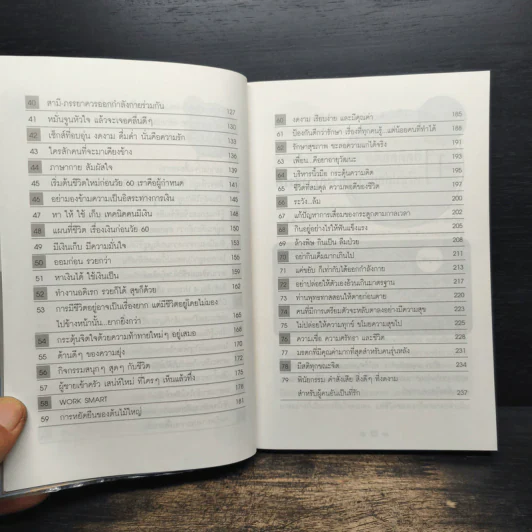 40 สามี-ภรรยาควรออกกำลังกายร่วมกัน 127
41 หมั่นจูนหัวใจ แล้วจะเจอคลื่นดีๆ 130
42 เซ็กส์ที่อบอุ่น งดงาม ดื่มด่ำ นั่นคือความรัก 133
43 ใครสักคนที่จะมาเคียงข้าง 136
44 ภาษากาย สัมผัสใจ 139
45 เริ่มต้นชีวิตใหม่ก่อนวัย 60 เราคือผู้กำหนด 141
46 อย่ามองข้ามความเป็นอิสระทางการเงิน 145
47 หา ให้ ใช้ เก็บ เทคนิคคนมีเงิน 147
48 แผนที่ชีวิต เรื่องเงินก่อนวัย 60 150
49 มีเงินเก็บ มีความมั่นใจ
50 ออมก่อน รวยกว่า
51 หาเงินได้ ใช้เงินเป็น 160
52 ทำงานอดิเรก รวยก็ได้ สุขก็ด้วย 162
53 การมีชีวิตอยู่อาจเป็นเรื่องยาก แต่มีชีวิตอยู่โดยไม่มอง
ไปข้างหน้านั้น...ยากยิ่งกว่า 165
54 กระตุ้นจิตใจด้วยความท้าทายใหม่ๆ อยู่เสมอ 168
55 ด้านดีๆ ของความยุ่ง 170
56 กิจกรรมสนุกๆ สุดๆ กับชีวิต 173
57 ผู้ชายเข้าครัว เสน่ห์ใหม่ ที่ใครๆ เห็นแล้วทึ่ง 176
58 WORK SMART 178
59 การหยัดยืนของต้นไม้ใหญ่ 181
60 งดงาม เรียบง่าย และมีคุณค่า 185
61 ป้องกันดีกว่ารักษา เรื่องที่ทุกคนรู้...แต่น้อยคนที่ทำได้ 188
62 รักษาสุขภาพ ชะลอความแก่ได้จริง 191
63 เพื่อน...คือยาอายุวัฒนะ 193
64 บริหารนิ้วมือ กระตุ้นความคิด 195
65 ชีวิตที่สมดุล ความพอดีของชีวิต 197
66 ระวัง...ล้ม 200
67 แก้ปัญหาการเสื่อมของกระดูกตามกาลเวลา 202
68 กินอยู่อย่างไรให้ฟันแข็งแรง 205
69 ล้างพิษ กินเป็น ดื่มป่วย 208
70 อย่ากินเค็มมากเกินไป 211
71 แค่ขยับ ก็เท่ากับได้ออกกำลังกาย 213
72 อย่าปล่อยให้ตัวเองอ้วนเกินมาตรฐาน 217
73 ท่านพุทธทาสสอนให้ตายก่อนตาย 221
74 คนที่มีการเตรียมตัวจะหลับตาลงอย่างมีความสุข 224
75 ไม่ปล่อยให้ความทุกข์ ขโมยความสุขไป 226
76 ความเชื่อ ความศรัทธา และชีวิต 228
77 มรดกที่มีคุณค่ามากที่สุดสำหรับคนรุ่นหลัง 231
78 มีสติทุกขณะจิต 234
79 พินัยกรรม คำสั่งเสีย สิ่งดีๆ ที่งดงาม
สำหรับผู้คนอันเป็นที่รัก 237